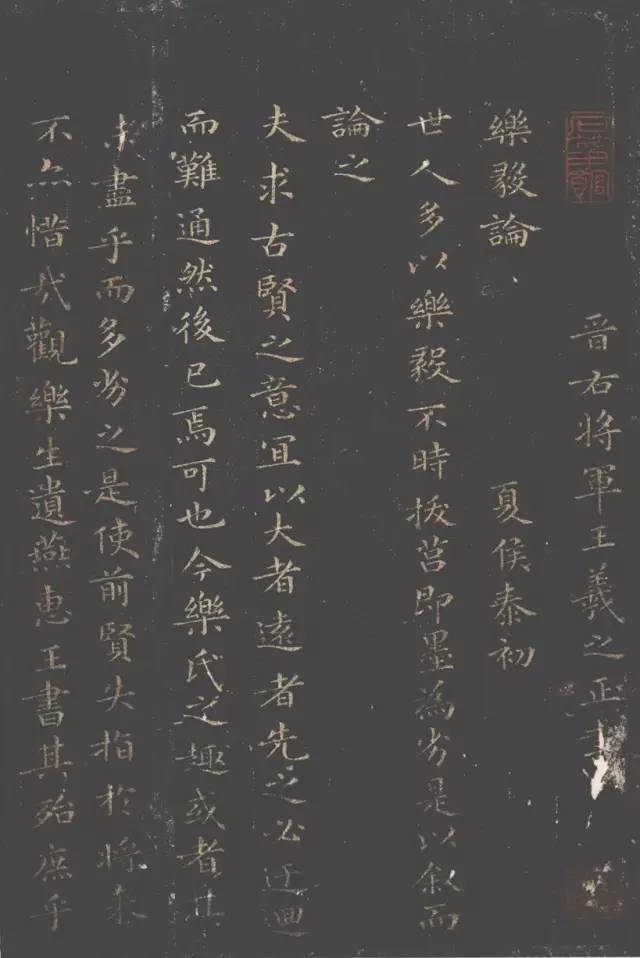 晋右将軍王羲之正書
樂毅論 夏侯泰初
世人多以樂毅不時拔莒即墨為劣是以叙而
論之
夫求古賢之意宜以大者遠者先之必迂迴
而難通然後已焉可也今樂氏之趣或者其
未盡乎而多劣之是使前賢失指於将来
不亦惜哉觀樂生遺燕惠王書其殆庶乎